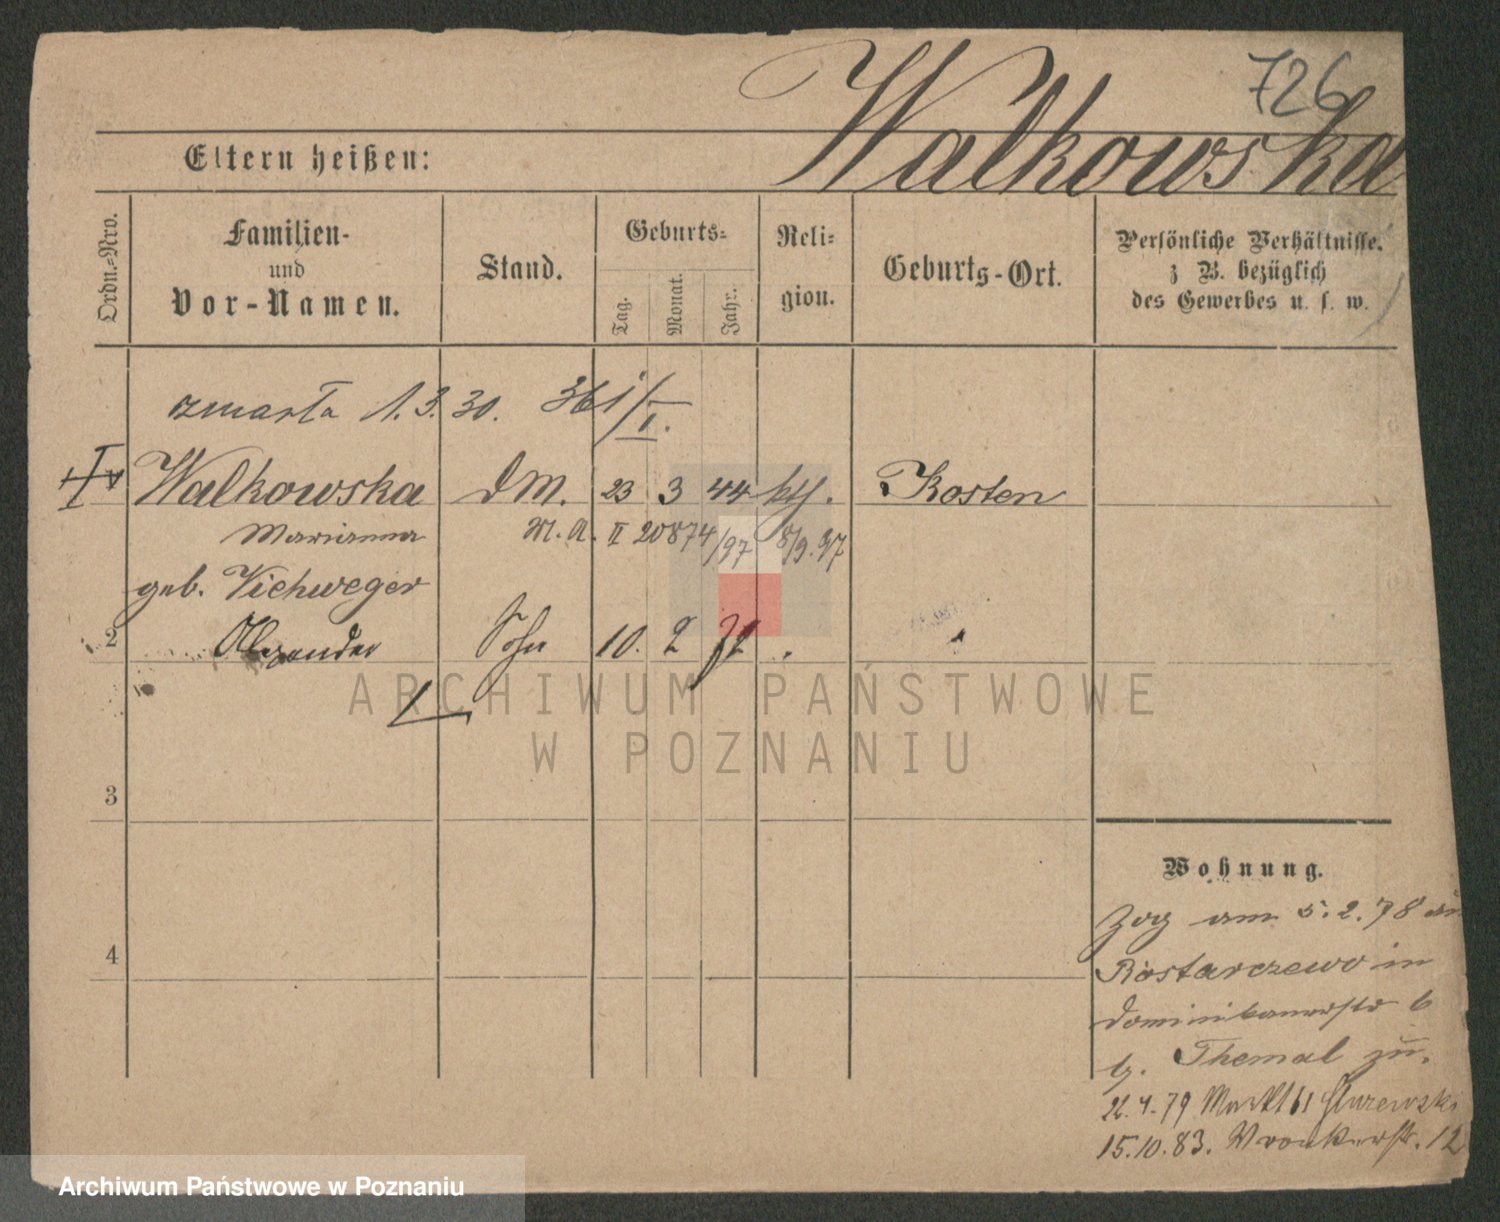 726
Walkowska
Eltern heißen:
Ordn.-Nro.
Familien-
und
Vor-Namen.
Stand.
Geburts-
Tag.
Monat.
Jahr.
Reli-
gion.
Geburts-Ort.
Persönliche Verhältnisse.
z B. bezüglich
des Gewerbes u. s. w.
zmarła 1.3.30. 361/I.
Walkowska DM. 23 3 44 kth. Kosten
Marianna M. A. II 20874/97 8/9.97
geb. Viehweger
2 Alexander Sohn 10. 2 72 .
ARCHIWUM PAŃSTWOWE
W POZNANIU
3
4
Wohnung.
Zog am 5.2.78 au
Rostarzewo in
Dominikanerstr 6
b. Themal zu.
22.4.79 Markt 61
15.10.83. Wronkerstr. 12
Archiwum Państwowe w Poznaniu